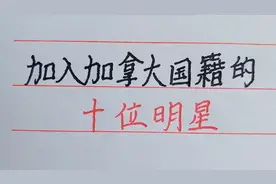 加入加拿大国籍的
十位明星